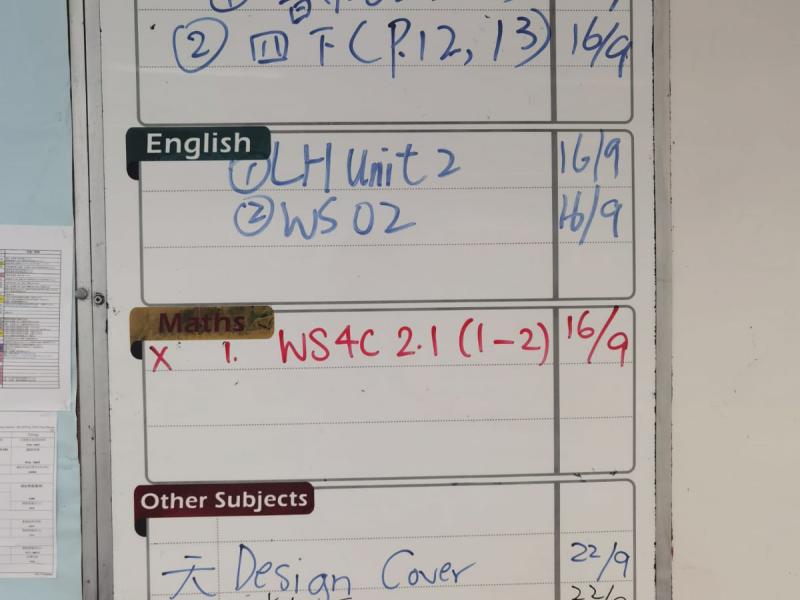 ② 四下(P.12, 13) 16/9
English
① LH Unit 2 16/9
② WS 02 16/9
Maths
X 1. WS4C 2.1 (1-2) 16/9
Other Subjects
天 Design Cover 22/9
22/9